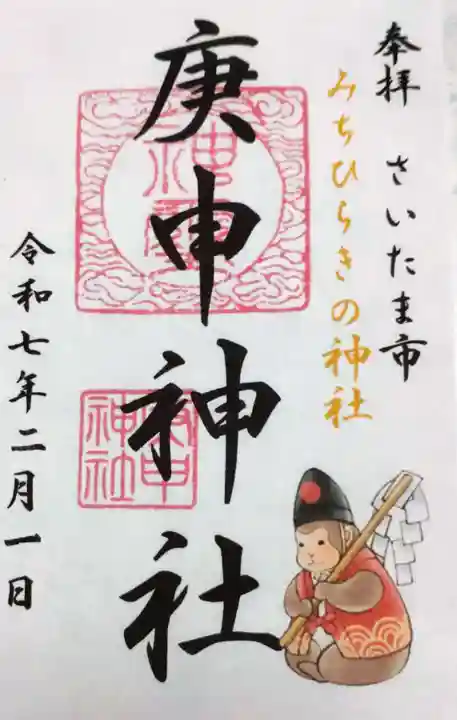 奉拝 さいたま市
みちひらきの神社
庚申神社
令和七年二月一日
神璽
庚申神社